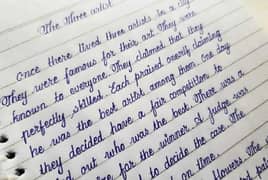 The Three artist
Once there lived three artists in a city.
They were famous for their art. They were
known to everyone. They claimed that they
perfectly skilled. Each praised onerly claiming
he was the best artist among them. One day
they decided have a fair competition to
out who was the best. There was a
for the winner. A judge was
to decide the case. The
on time.
flowers. The